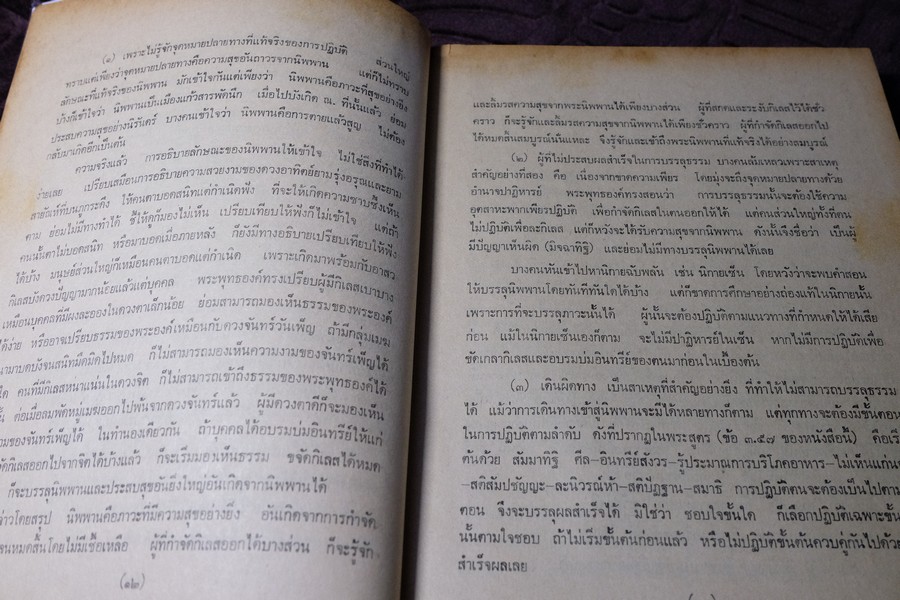 (๑) เพราะไม่รู้จักจุดหมายปลายทางที่แท้จริงของการปฏิบัติ ส่วนใหญ่
ทราบแต่เพียงว่าจุดหมายปลายทางคือความสุขอันถาวรจากนิพพาน แต่ก็ไม่ทราบ
ลักษณะที่แท้จริงของนิพพาน มักเข้าใจกันแต่เพียงว่า นิพพานคือภาวะที่สุขอย่างยิ่ง
บ้างก็เข้าใจว่า นิพพานเป็นเมืองแก้วสารพัดนึก เมื่อไปบังเกิด ณ. ที่นั้นแล้ว ย่อม
ประสบความสุขอย่างนิรันดร์ บางคนเข้าใจว่า นิพพานคือการตายแล้วสูญ ไม่ต้อง
กลับมาเกิดอีกเป็นต้น
ความจริงแล้ว การอธิบายลักษณะของนิพพานให้เข้าใจ ไม่ใช่สิ่งที่ทำได้
ง่ายเลย เปรียบเสมือนการอธิบายความสวยงามของดวงอาทิตย์ยามรุ่งอรุณและยาม
สายัณห์ที่บนภูกระดึง ให้คนตาบอดสนิทแต่กำเนิดฟัง ที่จะให้เกิดความซาบซึ้งเห็น
ตาม ย่อมไม่มีทางทำได้ ชี้ให้ดูก็มองไม่เห็น เปรียบเทียบให้ฟังก็ไม่เข้าใจ แต่ถ้า
คนนั้นตาไม่บอดสนิท หรือมาบอดเมื่อภายหลัง ก็ยังมีทางอธิบายเปรียบเทียบให้ฟัง
ได้บ้าง มนุษย์ส่วนใหญ่ก็เหมือนคนตาบอดแต่กำเนิด เพราะเกิดมาพร้อมกับอาสวะ
กิเลสบังดวงปัญญามากน้อยแล้วแต่บุคคล พระพุทธองค์ทรงเปรียบผู้มีกิเลสเบาบาง
เหมือนบุคคลที่มีผงละอองในดวงตาเล็กน้อย ย่อมสามารถมองเห็นธรรมของพระองค์
ได้ง่าย หรืออาจเปรียบธรรมของพระองค์เหมือนกับดวงจันทร์วันเพ็ญ ถ้ามีกลุ่มเมฆ
นามาบดบังจนสนิทมืดมิดไปหมด ก็ไม่สามารถมองเห็นความงามของจันทร์เพ็ญได้
ใด คนที่มีกิเลสหนาแน่นในดวงจิต ก็ไม่สามารถเข้าถึงธรรมของพระพุทธองค์ได้
นั้น ต่อเมื่อลมพัดหมู่เมฆออกไปพ้นจากดวงจันทร์แล้ว ผู้มีดวงตาดีก็จะมองเห็น
ามของจันทร์เพ็ญได้ ในทำนองเดียวกัน ถ้าบุคคลได้อบรมบ่มอินทรีย์ให้แก่
จัดกิเลสออกไปจากจิตได้บ้างแล้ว ก็จะเริ่มมองเห็นธรรม ขจัดกิเลสได้หมด
ก็จะบรรลุนิพพานและประสบสุขอันยิ่งใหญ่อันเกิดจากนิพพานได้
ล่าวโดยสรุป นิพพานคือภาวะที่มีความสุขอย่างยิ่ง อันเกิดจากการกำจัด
สนหมดสิ้นโดยไม่มีเชื้อเหลือ ผู้ที่กำจัดกิเลสออกได้บางส่วน ก็จะรู้จัก
(๑๒)
และลิ้มรสความสุขจากพระนิพพานได้เพียงบางส่วน ผู้ที่สกดและระงับกิเลสไว้ได้ชั่ว
คราว ก็จะรู้จักและลิ้มรสความสุขจากนิพพานได้เพียงชั่วคราว ผู้ที่กำจัดกิเลสออกไป
ได้หมดสิ้นสมบูรณ์นั่นแหละ จึงรู้จักและเข้าถึงพระนิพพานที่แท้จริงได้อย่างสมบูรณ์
(๒) ผู้ที่ไม่ประสบผลสำเร็จในการบรรลุธรรม บางคนล้มเหลวเพราะสาเหตุ
สำคัญอย่างที่สอง คือ เนื่องจากขาดความเพียร โดยมุ่งจะถึงจุดหมายปลายทางด้วย
อำนาจปฏิหารย์ พระพุทธองค์ทรงสอนว่า การบรรลุธรรมนั้นจะต้องใช้ความ
อุตสาหะพากเพียรปฏิบัติ เพื่อกำจัดกิเลสในตนออกให้ได้ แต่คนส่วนใหญ่ทั้งที่ตน
ไม่ปฏิบัติเพื่อละกิเลส แต่ก็หวังจะได้รับความสุขจากนิพพาน ดังนั้นจึงชื่อว่า เป็นผู้
มีปัญญาเห็นผิด (มิจฉาทิฐิ) และย่อมไม่มีทางบรรลุนิพพานได้เลย
บางคนหันเข้าไปหานิกายฉับพลัน เช่น นิกายเซ็น โดยหวังว่าจะพบคำสอน
ให้บรรลุนิพพานโดยทันทีทันใดได้บ้าง แต่ก็ขาดการศึกษาอย่างถ่องแท้ในนิกายนั้น
เพราะการที่จะบรรลุภาวะนั้นได้ ผู้นั้นจะต้องปฏิบัติตามแนวทางที่กำหนดให้ได้เสีย
ก่อน แม้ในนิกายเซ็นเองก็ตาม จะไม่มีปาฏิหารย์ในเซ็น หากไม่มีการปฏิบัติเพื่อ
ขัดเกลากิเลสและอบรมบ่มอินทรีย์ของตนมาก่อนในเบื้องต้น
(๓) เดินผิดทาง เป็นสาเหตุที่สำคัญอย่างยิ่ง ที่ทำให้ไม่สามารถบรรลุธรรม
ได้ แม้ว่าการเดินทางเข้าสู่นิพพานจะมีได้หลายทางก็ตาม แต่ทุกทางจะต้องมีขั้นตอน
ในการปฏิบัติตามลำดับ ดังที่ปรากฏในพระสูตร (ข้อ ๓.๕๘ ของหนังสือนี้) คือเริ่
ต้นด้วย สัมมาทิฐิ ศีล-อินทรีย์สังวร-รู้ประมาณการบริโภคอาหาร-ไม่เห็นแก่นอ
-สติสัมปชัญญะ-ละนิวรณ์ห้า-สติปัฏฐาน-สมาธิ การปฏิบัติตนจะต้องเป็นไปตาม
ตอน จึงจะบรรลุผลสำเร็จได้ มิใช่ว่า ชอบใจขั้นใด ก็เลือกปฏิบัติเฉพาะขั้น
นั้นตามใจชอบ ถ้าไม่เริ่มขั้นต้นก่อนแล้ว หรือไม่ปฏิบัติขั้นต้นควบคู่กันไปด้วย
สำเร็จผลเลย